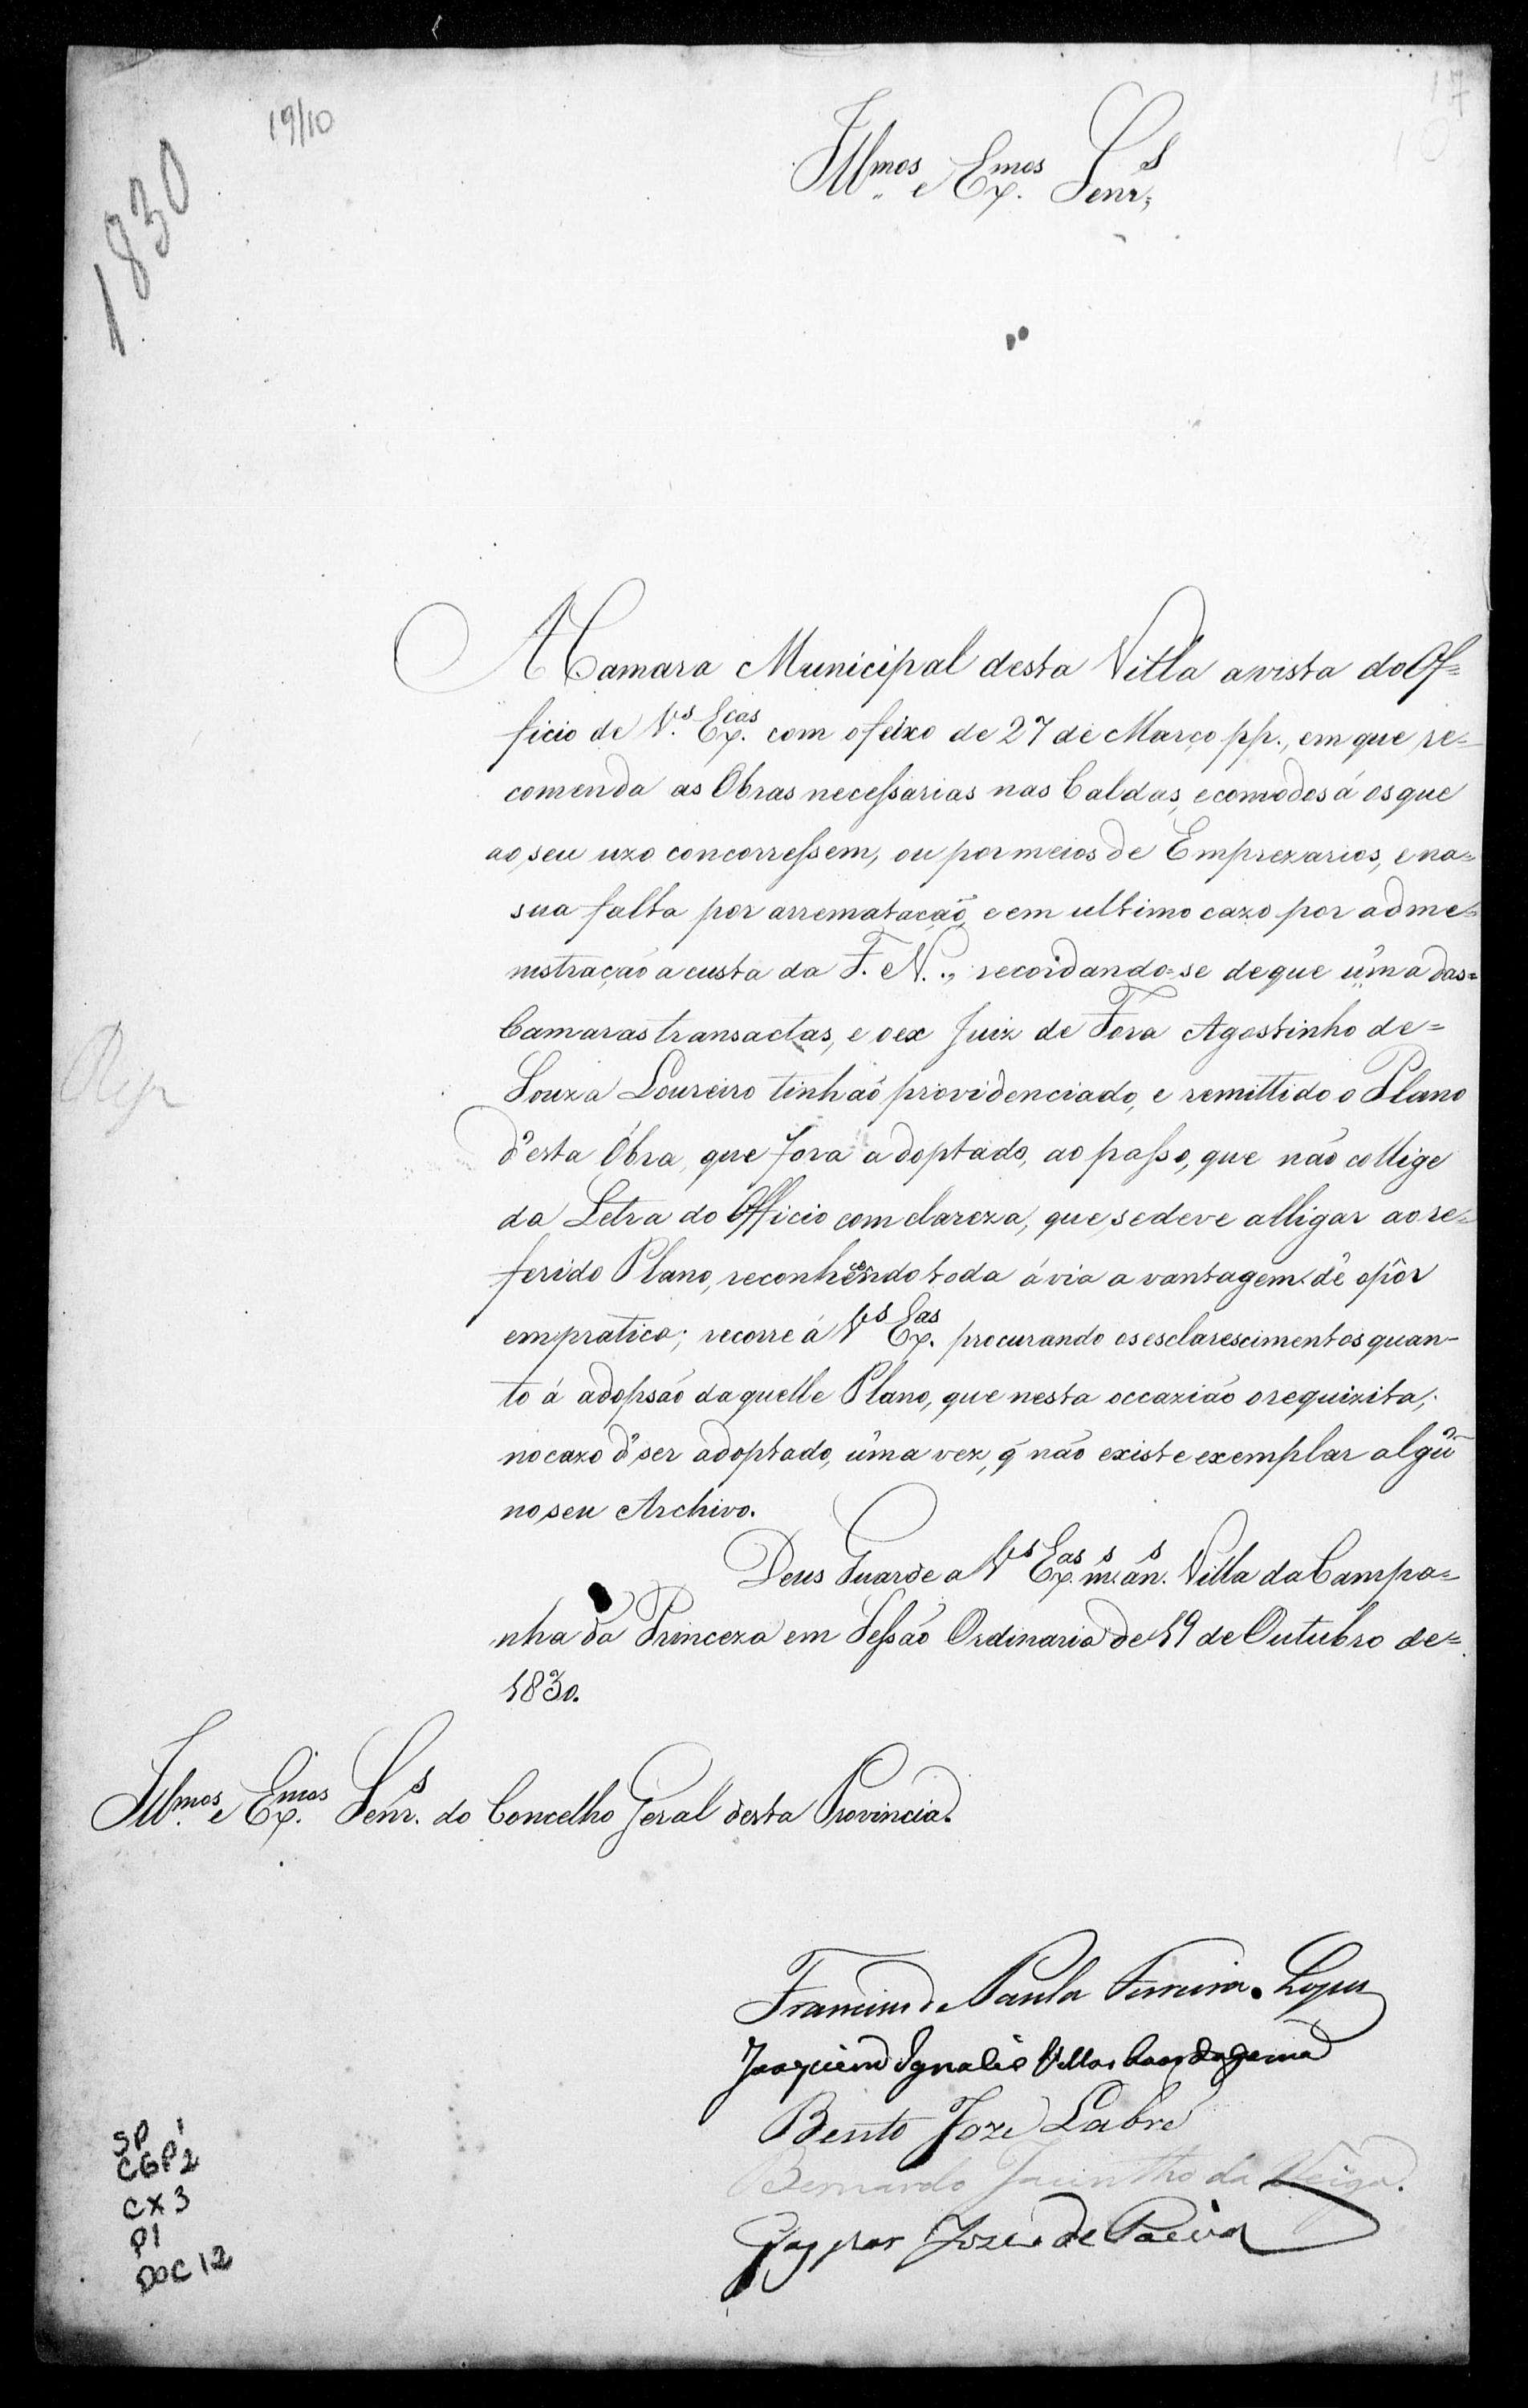 17
10
19/10
1830
Illmos e Exmos Senrs
A Camara Municipal desta Villa avista do Of=
ficio de V.s Ex.cas com o feixo de 27 de Março pp., em que re=
comenda as Obras necessarias nas Caldas, e comodos á os que
ao seu uzo concorressem, ou por meios de Emprezarios, e na=
sua falta por arrematação, e em ultimo cazo por adme=
nistração a custa da F. N., recordando-se de que uma das=
Camaras transactas, e o ex Juiz de Fora Agostinho de=
Souza Loureiro tinhão providenciado, e remittido o Plano
d'esta Óbra, que fora adoptado, ao passo, que não collige
da Letra do Officio com clareza, que se deve alligar ao re=
ferido Plano, reconhecendo toda á via a vantagem dê o pôr
em pratica; recorre á V.s Ex.as procurando os esclarescimentos quan-
to á adopsão daquelle Plano, que nesta occazião o requizita,
no cazo d'ser adoptado, uma vez, q̃ não existe exemplar algũ
no seu Archivo.
Deus Guarde a V.s Ex.as m.s an.s Villa da Campa=
nha da Princeza em Sessão Ordinaria de 19 de Outubro de=
1830.
Illmos e Exmos Senr.s do Concelho Geral desta Provincia.
Francisco de Paula Ferreira Lopes
Joaquim Ignacio Villas boas da Gama
Bento Joze Labre
Bernardo Jacintho da Veiga.
Gaspar Joze de Paiva
SP 1
CGP2
CX3
P1
DOC 12